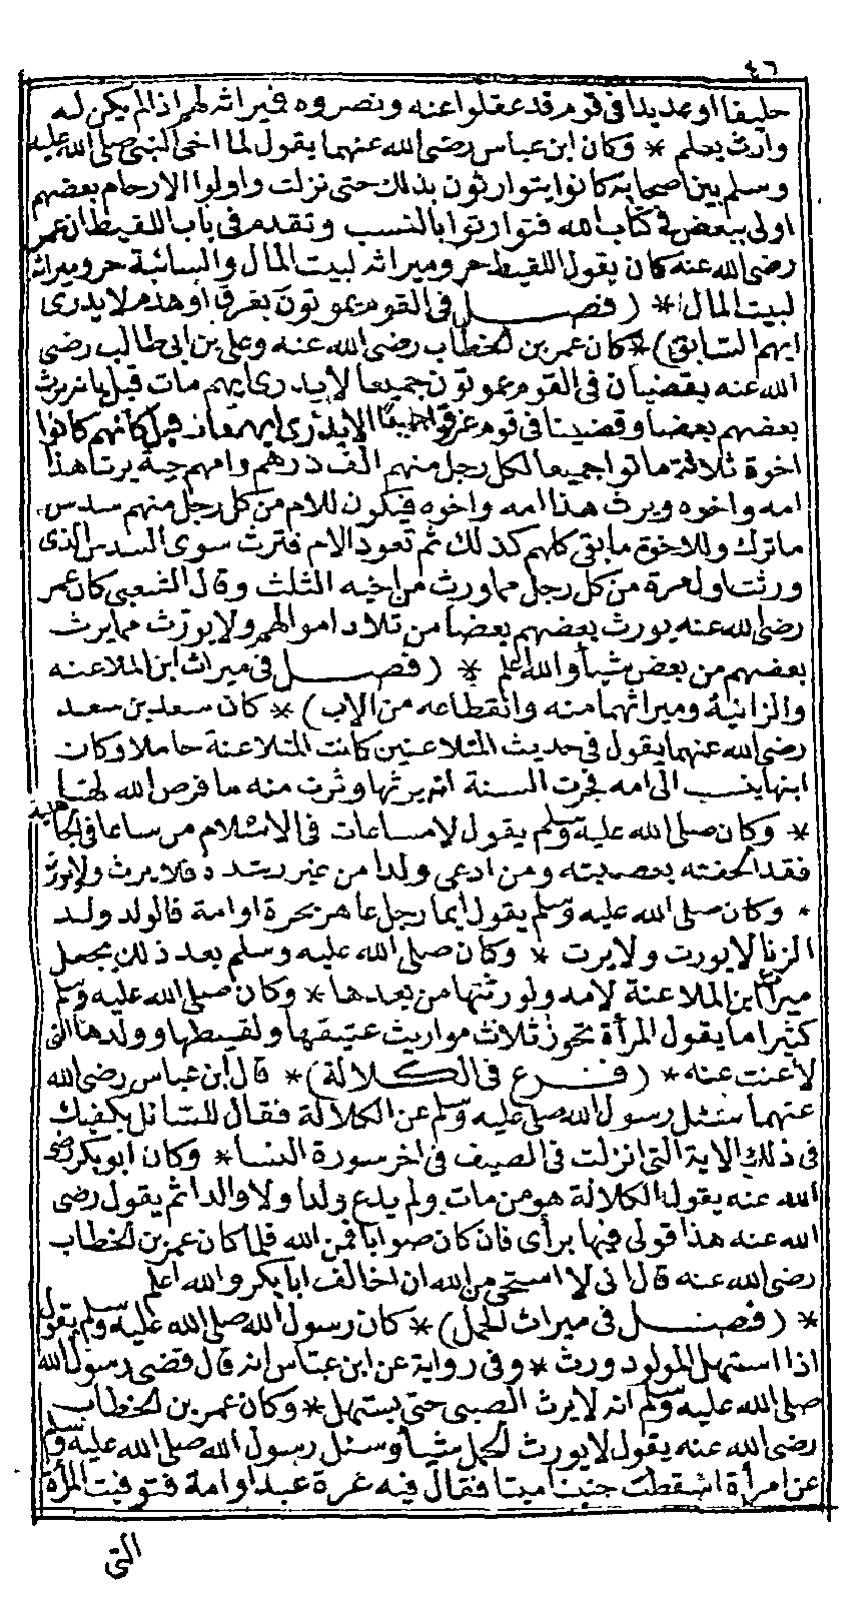 ٤٦
حليفا او عديدا فى قوم قد عقلوا عنه ونصروه فيراثه لهم اذا لم يكن له
وارث يعلم * وكان ابن عباس رضى الله عنهما يقول لما اخى النبى صلى الله عليه
وسلم بين اصحابه كانوا يتوارثون بذلك حتى نزلت واولوا الارحام بعضهم
اولى ببعض فى كتاب الله فتوارثوا بالنسب وتقدم فى باب اللقيط ان عمر
رضى الله عنه كان يقول اللقيط حر وميراثه لبيت المال والسائبة حر وميراثه
لبيت المال * (فصل فى القوم يموتون بغرق او هدم لا يدرى
ايهم السابق) * كان عمر بن الخطاب رضى الله عنه وعلى بن ابى طالب رضى
الله عنه يقضيان فى القوم يموتون جميعا لا يدرى ايهم مات قبل بان يرث
بعضهم بعضا وقضينا فى قوم غرقوا جميعا لا يدرى ايهم مات قبل كانهم كانوا
اخوة ثلاثة ماتوا جميعا لكل رجل منهم الف درهم وامهم حية يرث هذا
امه واخوه ويرث هذا امه واخوه فيكون للام من كل رجل منهم سدس
ما ترك وللاخوة ما بقى كلهم كذلك ثم تعود الام فترث سوى السدس الذى
ورثت اول مرة من كل رجل مما ورث من اخيه الثلث وقال الشعبى كان عمر
رضى الله عنه يورث بعضهم بعضا من تلاد اموالهم ولا يورث مما يرث
بعضهم من بعض شيأ والله اعلم * (فصل فى ميراث ابن الملاعنه
والزانية وميراثهما منه وانقطاعه من الاب) * كان سعد بن سعد
رضى الله عنهما يقول فى حديث المتلاعنين كانت المتلاعنة حاملا وكان
ابنها ينسب الى امه فجرت السنة انه يرثها وترث منه ما فرض الله لها
* وكان صلى الله عليه وسلم يقول لا مساعات فى الاسلام من ساعا فى الجاهلية
فقد الحقته بعصبته ومن ادعى ولدا من غير رشده فلا يرث ولا يورث
* وكان صلى الله عليه وسلم يقول ايما رجل عاهر بحرة او امة فالولد ولد
الزنا لا يورث ولا يرث * وكان صلى الله عليه وسلم بعد ذلك يجعل
ميراث ابن الملاعنة لامه ولورثتها من بعدها * وكان صلى الله عليه وسلم
كثيرا ما يقول المرأة تحوز ثلاث مواريث عتيقها ولقيطها وولدها التى
لاعنت عنه * (فرع فى الكلالة) * قال ابن عباس رضى الله
عنهما سئل رسول الله صلى عليه وسلم عن الكلالة فقال للسائل يكفيك
فى ذلك الاية التى انزلت فى الصيف فى اخر سورة النسا * وكان ابو بكر رضى
الله عنه يقول الكلالة هو من مات ولم يدع ولدا ولا والدا ثم يقول رضى
الله عنه هذا قولى فيها برأى فان كان صوابا فمن الله فلما كان عمر بن الخطاب
رضى الله عنه قال انى لا استحى من الله ان اخالف ابا بكر والله اعلم
* (فصل فى ميراث الحمل) * كان رسول الله صلى الله عليه وسلم يقول
اذا استهل المولود ورث * وفى رواية عن ابن عباس انه قال قضى رسول الله
صلى الله عليه وسلم انه لا يرث الصبى حتى يستهل * وكان عمر بن الخطاب
رضى الله عنه يقول لا يورث الحمل شيأ وسئل رسول الله صلى الله عليه وسلم
عن امرأة اسقطت جنينا ميتا فقال فيه غرة عبد او امة فتوفيت المرأة
التى